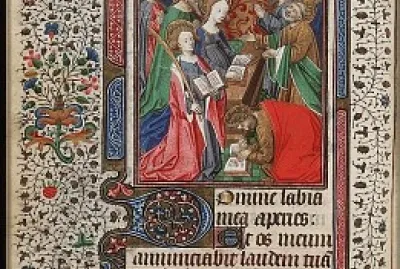 Domine labia
mea aperies
Et os meum
annunciabit laudem tuā